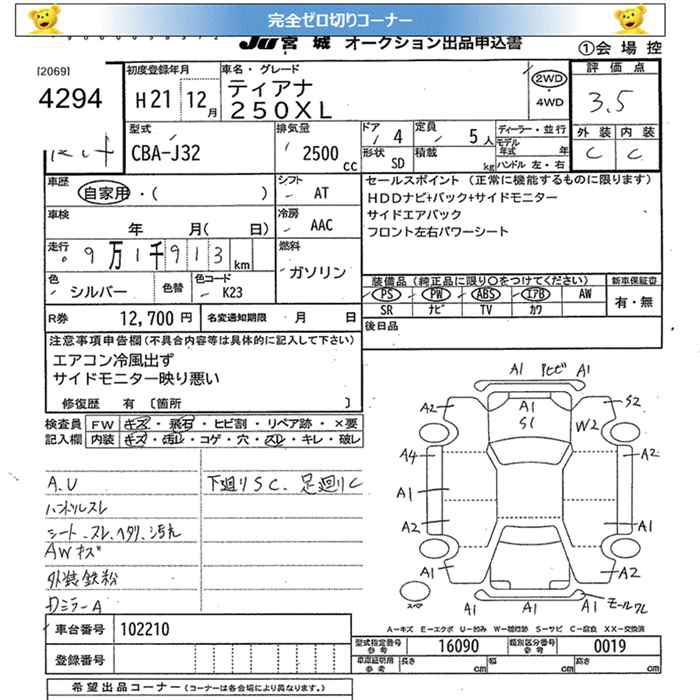 完全ゼロ切りコーナー
JU 宮城 オークション出品申込書
①会場控
[2069]
4294
初度登録年月
H21 12月
車名・グレード
ティアナ
250XL
2WD
・
4WD
評価点
3.5
外装 内装
C C
型式
CBA-J32
排気量
2500 cc
ドア 4
形状 SD
定員 5人
積載 kg
ディーラー・並行
モデル年式 年
ハンドル 左・右
車歴
自家用・( )
シフト
AT
セールスポイント (正常に機能するものに限ります)
HDDナビ+バック+サイドモニター
サイドエアバック
フロント左右パワーシート
車検
年 月( 日)
冷房
AAC
走行
9万1千913 km
燃料
ガソリン
色
シルバー
色替
色コード
K23
装備品 (純正品に限り○をつけてください)
新車保証書
PS PW ABS エアB AW
SR ナビ TV カワ
有・無
R券 12,700円
名変通知期限 月 日
後日品
注意事項申告欄 (不具合内容等は具体的に記入して下さい)
エアコン冷風出ず
サイドモニター映り悪い
修復歴 有 〔箇所 〕
検査員記入欄
FW キズ・飛石・ヒビ割・リペア跡・×要
内装 キズ・汚レ・コゲ・穴・スレ・キレ・破レ
A.U
ハンドルスレ
シート、スレ、ヘタリ、汚れ
AWキズ
外装鉄粉
Dミラー A
下廻りSC、足廻りC
A1 ヒビ A1
A2 A1 S2
S1 W2
A4 A2
A1
A2 A1
A1 A2
A1 A1 モール ワレ
スペア
A－キズ E－エクボ U－凹み W－補修跡 S－サビ C－腐食 XX－交換済
車台番号 102210
登録番号
型式指定番号 参考 16090
類別区分番号 参考 0019
車庫証明用 参考 長さ cm 幅 cm 高さ cm
希望出品コーナー (コーナーは各会場により異なります。)